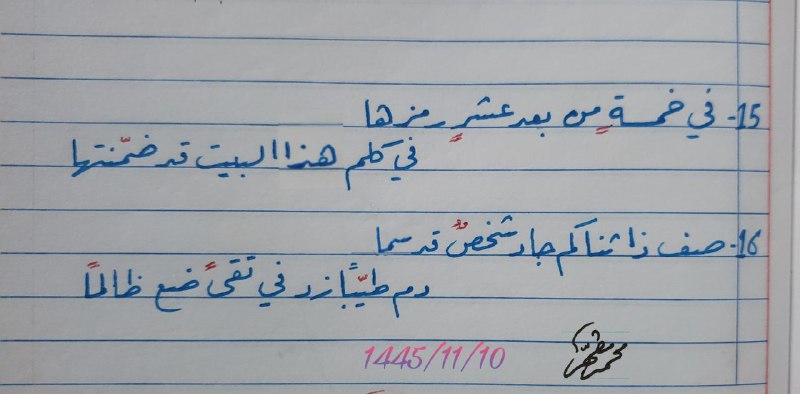 15- في خمسةٍ من بعد عشرٍ رمزها
في كلم هذا البيت قد ضمّنتها
16- صف ذا ثناكم جاد شخصٌ قد سما
دم طيّبًا زد في تقىً ضع ظالمًا
1445/11/10